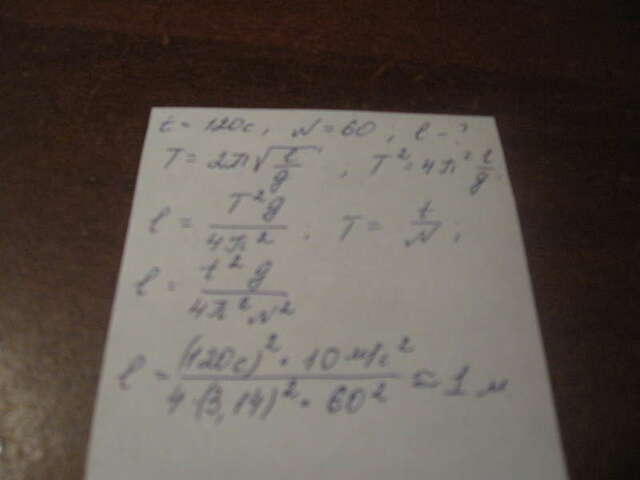 t = 120с, N = 60, l - ?
T = 2π√(l/g), T² = 4π² l/g;
l = T²g/4π²; T = t/N;
l = t²g/4π²N²
l = (120с)² · 10 м/с² / 4 · (3,14)² · 60² = 1 м